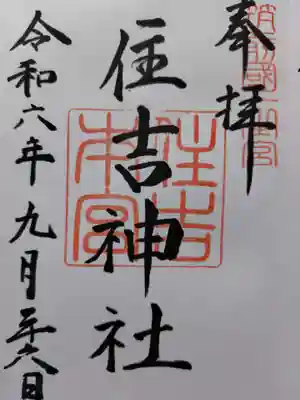 奉拝
筑前國一之宮
住吉神社
住吉
本宮
令和六年九月二十六日